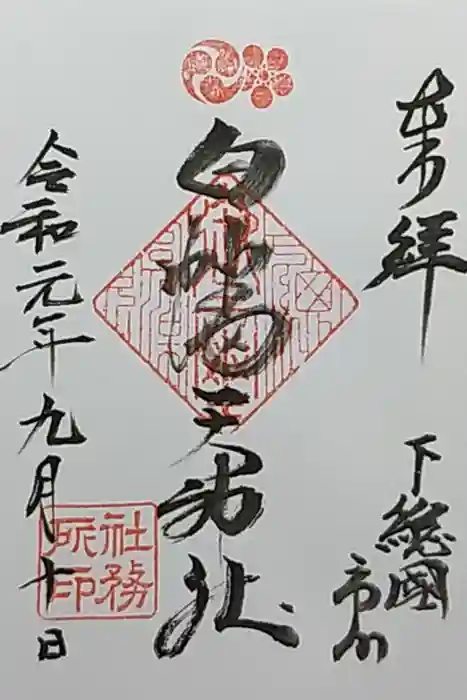 奉拝
下総國
市川
白幡天神社
令和元年九月十日
社務
所印